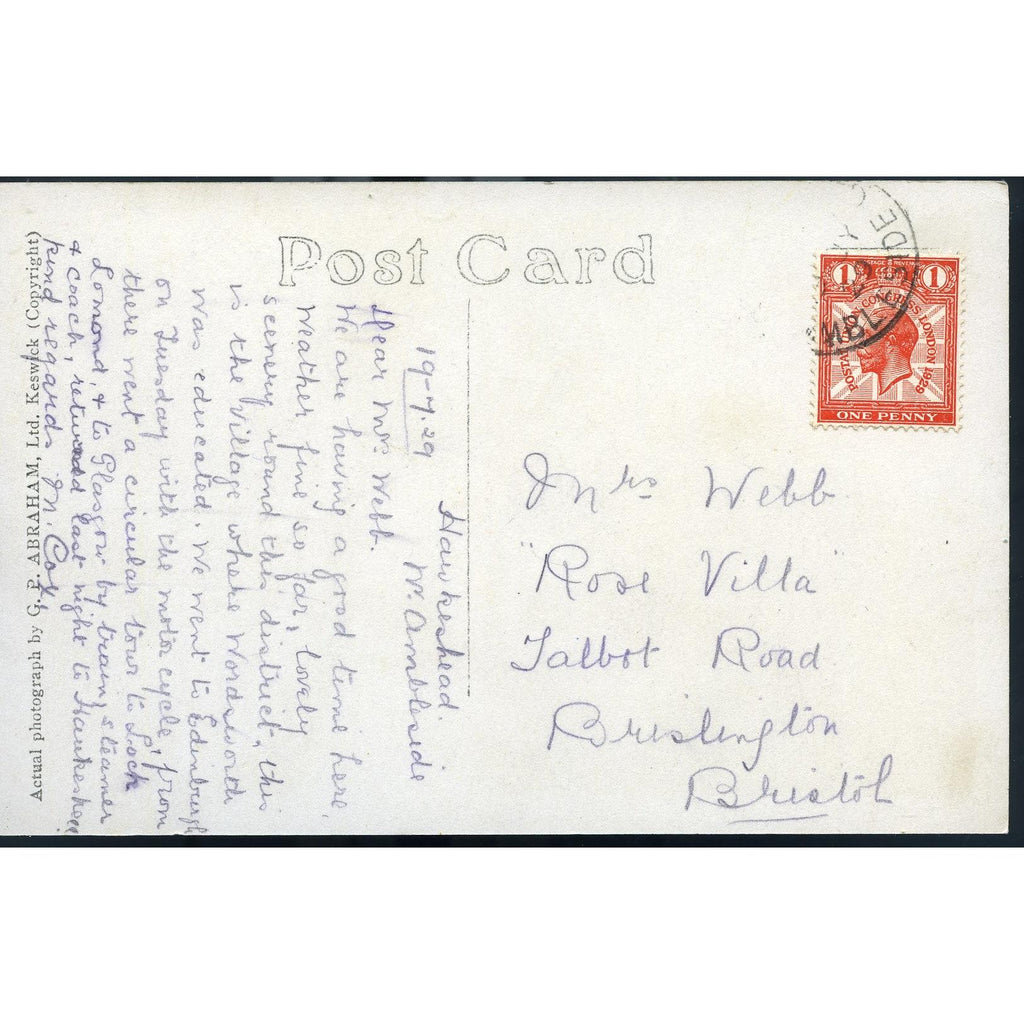 Post Card
Hawkeshead
Nr Ambleside
19-7.29
Dear Mrs Webb.
We are having a good time here,
Weather fine so far, lovely
scenery round this district, this
is the Village where Wordsworth
was educated. We went to Edinburgh
on Tuesday with the motorcycle, from
there went a circular tour to Loch
Lomond, & to Glasgow by train, steamer
& coach, returned last night to Hawkeshead
kind regards M. Cox.
Actual photograph by G. P. ABRAHAM, Ltd. Keswick (Copyright)
1 POSTAGE & REVENUE 1
POSTAL UNION CONGRESS LONDON 1929
ONE PENNY
AMBLESIDE
Mrs Webb
"Rose Villa"
Talbot Road
Brislington
Bristol